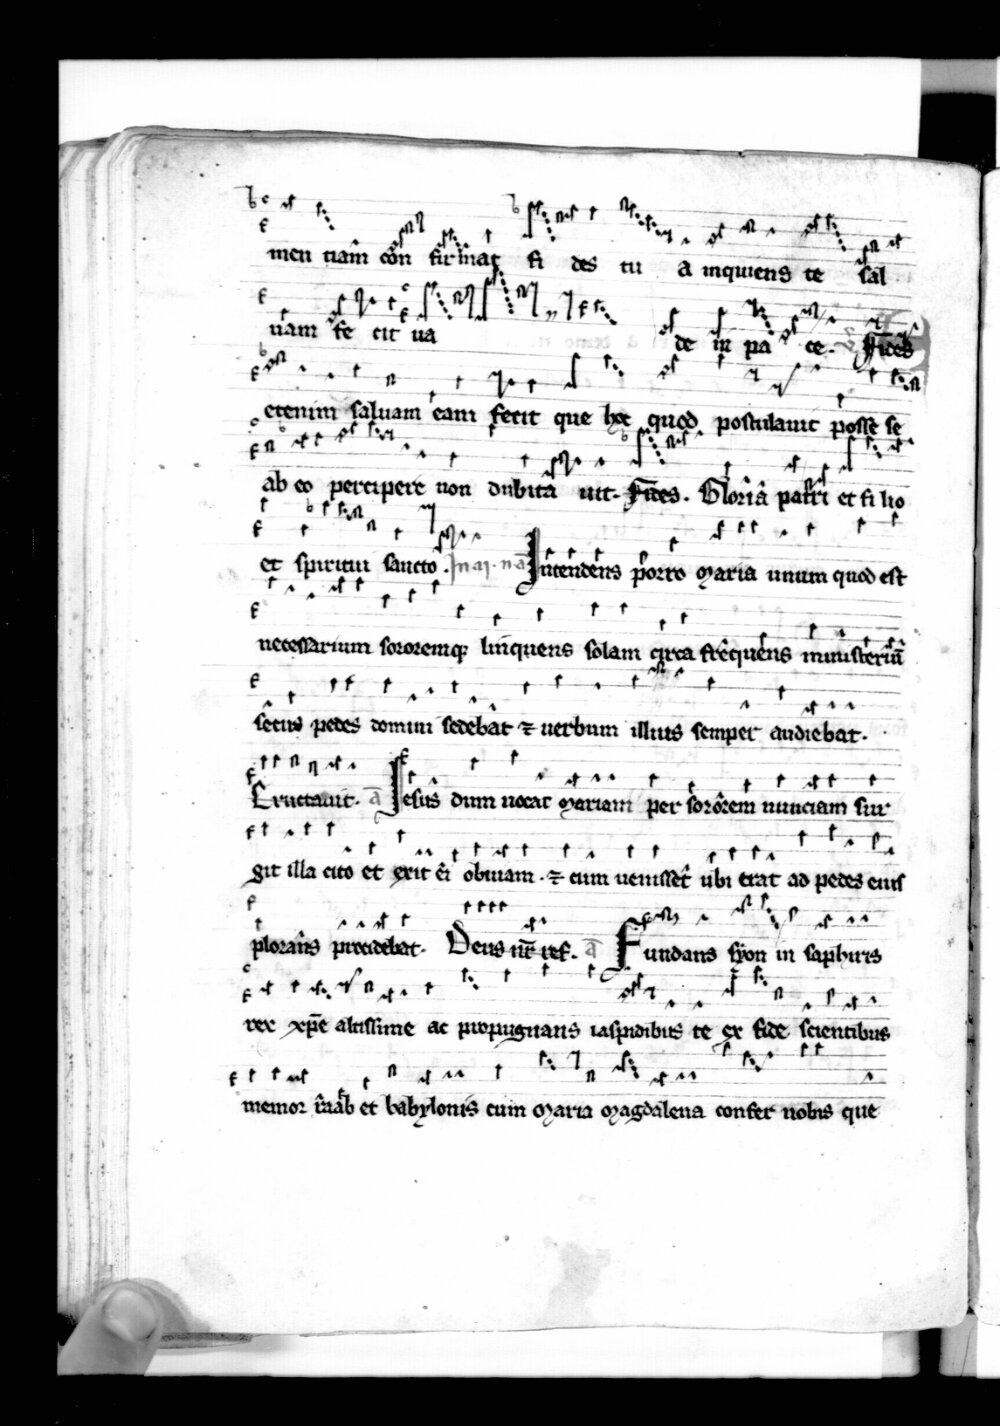 men tiam con firmat fi des tu a inquiens te sal
uam fe cit ua de in pa ce. Fides
etenim saluam eam fecit que hec quod postulauit posse se
ab eo percipere non dubita uit. Fides. Gloria patri et fi lio
et spiritui sancto. Intendens porro maria unum quod est
necessarium sororemq; linquens solam circa frequens ministeriū
secus pedes domini sedebat ⁊ uerbum illius semper audiebat.
Eructauit. a Iesus dum uocat mariam per sororem nunciam sur
git illa cito et exit ei obuiam. ⁊ cum uenisset ubi erat ad pedes eius
plorans procidebat. Deus nr̄ ref. a Fundans syon in saphiris
rex xp̄e altissime ac propugnans iaspidibus te ex fide scientibus
memor raab et babylonis cum maria magdalena confer nobis que